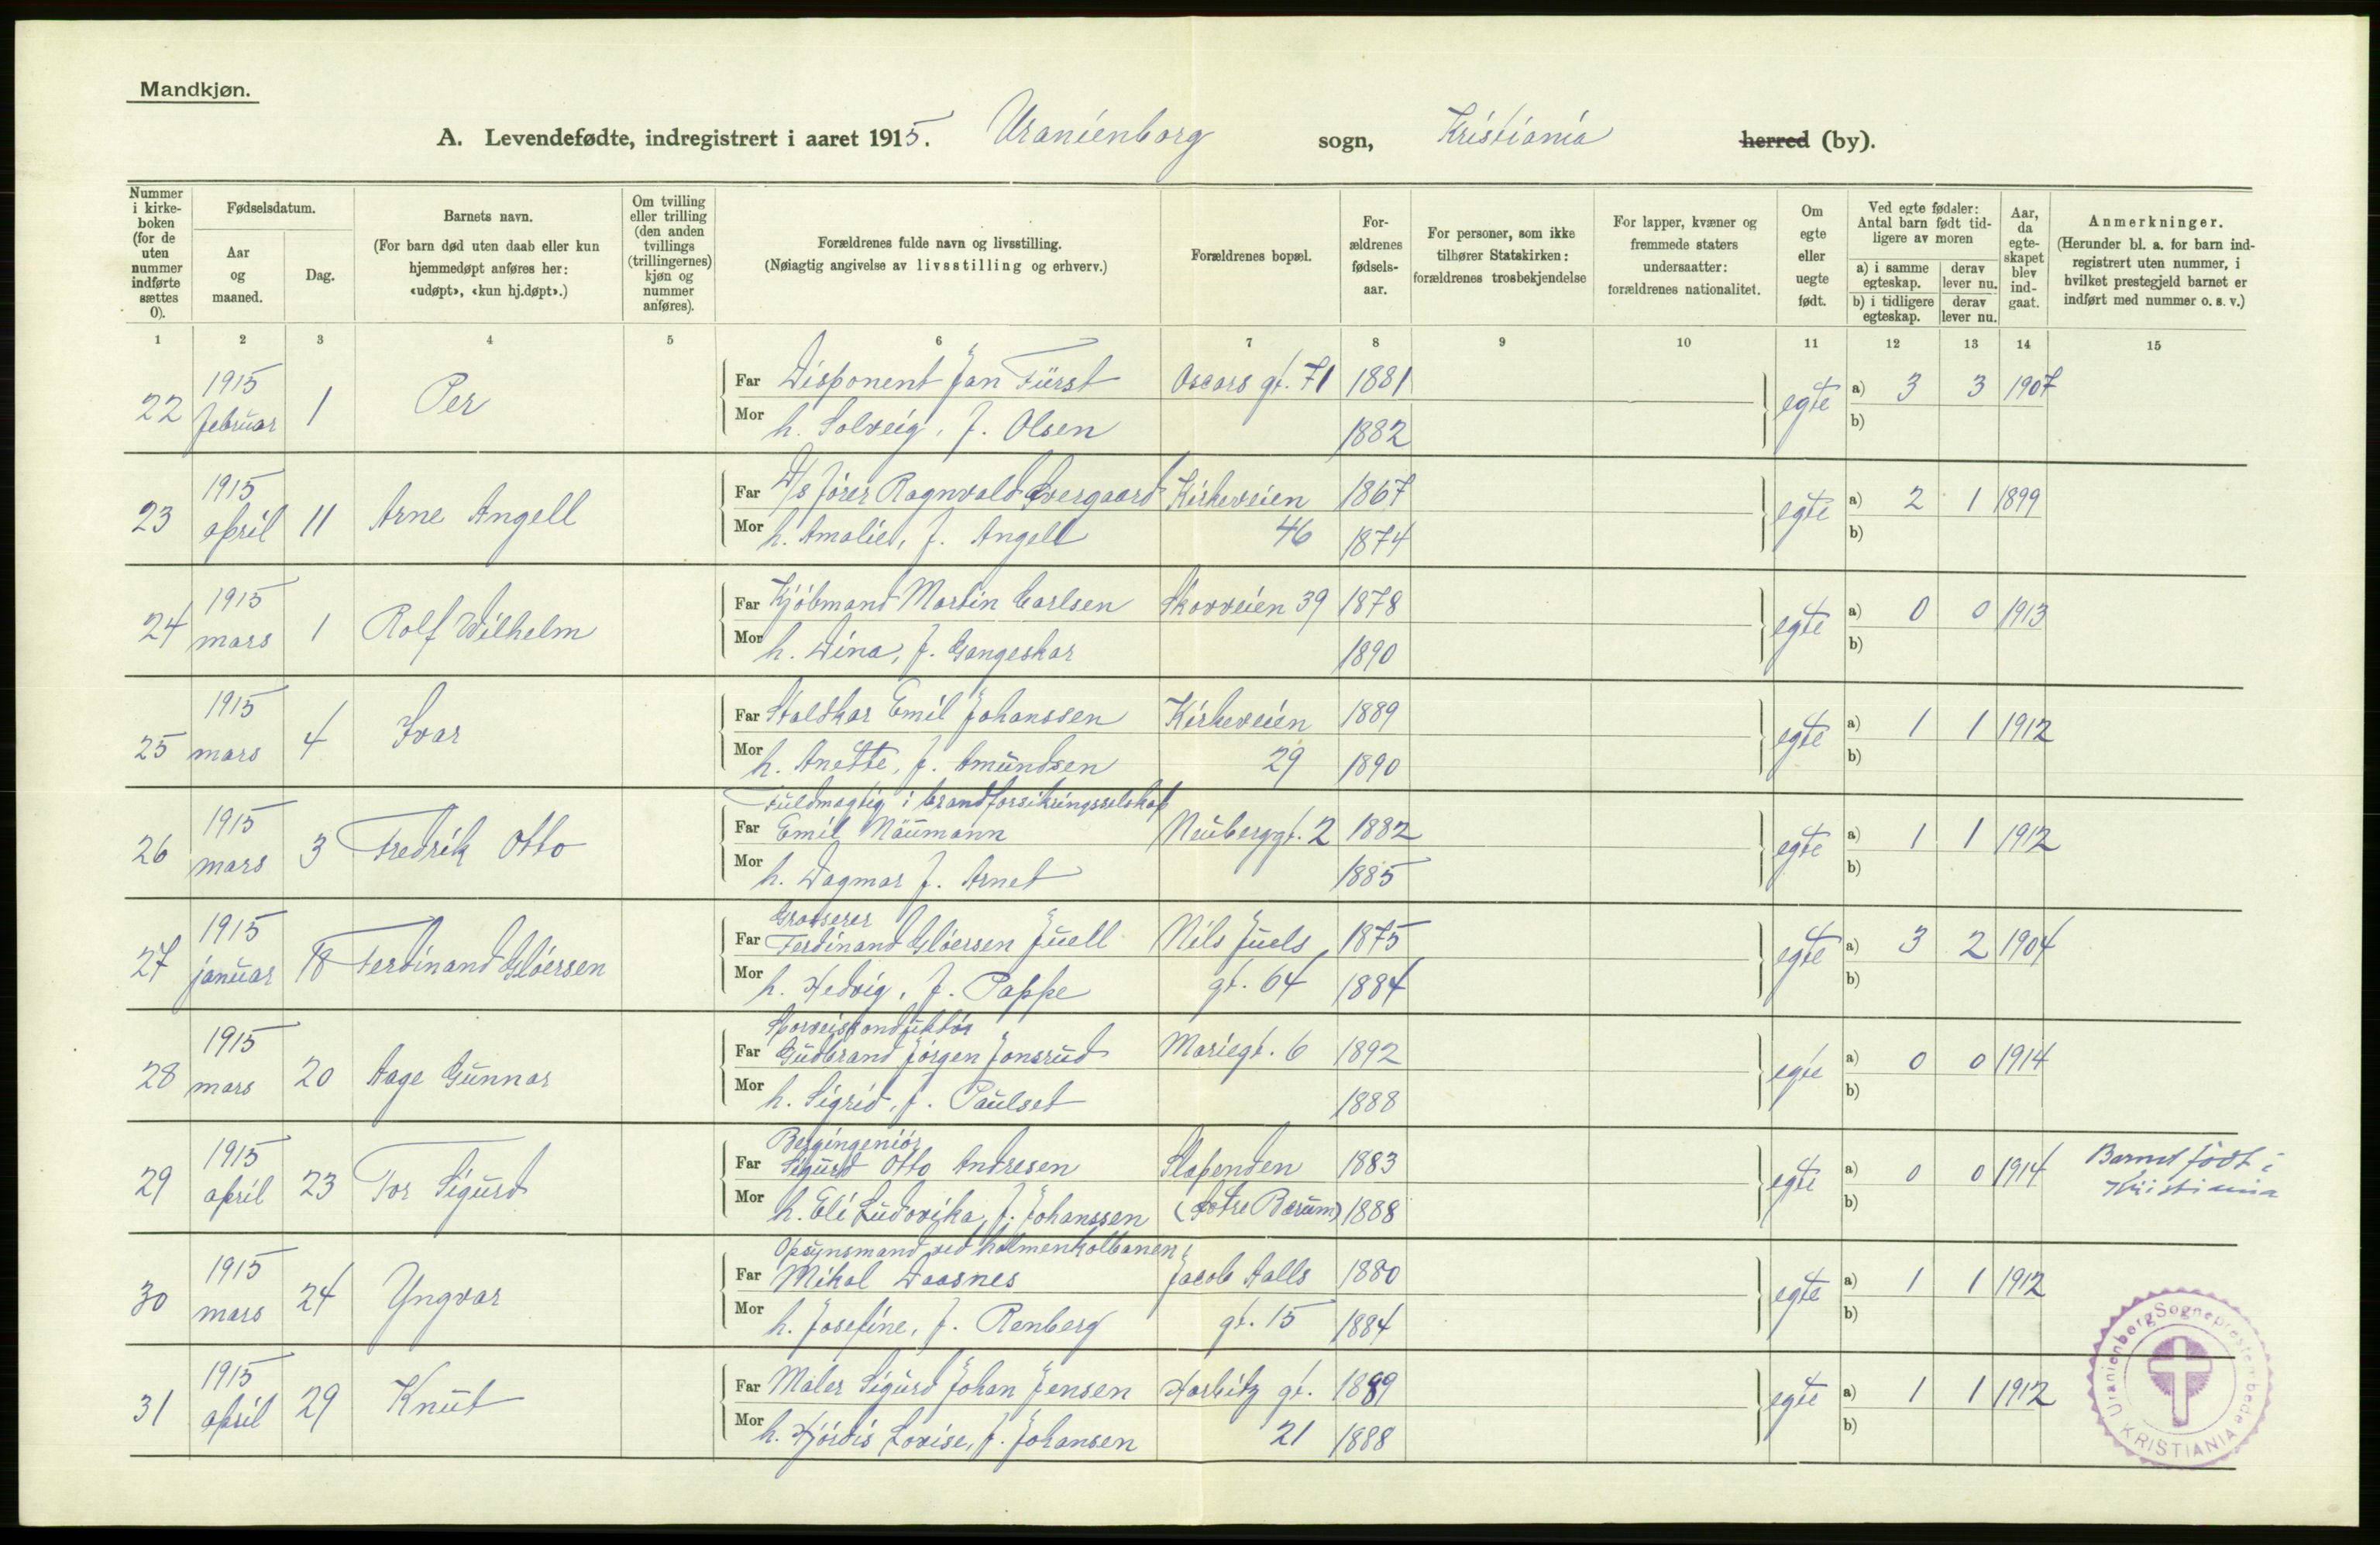 Mandkjøn.
A. Levendefødte, indregistrert i aaret 1915. Uranienborg sogn, Kristiania herred (by).
Nummer i kirke-boken (for de uten nummer indførte sættes 0).
Fødselsdatum.
Aar og maaned.
Dag.
Barnets navn.
(For barn død uten daab eller kun hjemmedøpt anføres her: «udøpt», «kun hj.døpt».)
Om tvilling eller trilling (den anden tvillings (trillingernes) kjøn og nummer anføres).
Forældrenes fulde navn og livsstilling.
(Nøiagtig angivelse av livsstilling og erhverv.)
Forældrenes bopæl.
For-ældrenes fødsels-aar.
For personer, som ikke tilhører Statskirken: forældrenes trosbekjendelse
For lapper, kvæner og fremmede staters undersaatter: forældrenes nationalitet.
Om egte eller uegte født.
Ved egte fødsler: Antal barn født tid-ligere av moren
a) i samme egteskap.
derav lever nu.
b) i tidligere egteskap.
derav lever nu.
Aar, da egte-skapet blev ind-gaat.
Anmerkninger.
(Herunder bl. a. for barn ind-registrert uten nummer, i hvilket prestegjeld barnet er indført med nummer o. s. v.)
1 2 3 4 5 6 7 8 9 10 11 12 13 14 15
22 1915 februar 1 Per
Far Disponent Jan Fürst Oscars gt. 71 1881 egte a) 3 3 1907
Mor h. Solveig, f. Olsen 1882 b)
23 1915 april 11 Arne Angell
Far D/s fører Ragnvald Overgaard Kirkeveien 1867 egte a) 2 1 1899
Mor h. Amalie, f. Angell 46 1874 b)
24 1915 mars 1 Rolf Wilhelm
Far Kjøbmand Martin Carlsen Skovveien 39 1878 egte a) 0 0 1913
Mor h. Dina, f. Gangeskar 1890 b)
25 1915 mars 4 Ivar
Far Staldkar Emil Johanssen Kirkeveien 1889 egte a) 1 1 1912
Mor h. Anette, f. Amundsen 29 1890 b)
26 1915 mars 3 Fredrik Otto
Fuldmagtig i brandforsikringsselskap
Far Emil Naumann Neuberggt. 2 1882 egte a) 1 1 1912
Mor h. Dagmar f. Arnet 1885 b)
27 1915 januar 18 Ferdinand Gløersen
Grosserer
Far Ferdinand Gløersen Juell Nils Juels 1875 egte a) 3 2 1904
Mor h. Hedvig, f. Pappe gt. 64 1884 b)
28 1915 mars 20 Aage Gunnar
Sporveiskonduktør
Far Gudbrand Jørgen Jonsrud Mariegt. 6 1892 egte a) 0 0 1914
Mor h. Sigrid, f. Paulset 1888 b)
29 1915 april 23 Tor Sigurd
Bergingeniør
Far Sigurd Otto Andresen Slependen 1883 egte a) 0 0 1914 Barnet født i
Mor h. Eli Ludovika, f. Johanssen (Østre Bærum) 1888 b) Kristiania
30 1915 mars 24 Yngvar
Opsynsmand ved holmenkolbanen
Far Mikal Daasnes Jacob Aalls 1880 egte a) 1 1 1912
Mor h. Josefine, f. Renberg gt. 15 1884 b)
31 1915 april 29 Knut
Far Maler Sigurd Johan Jensen Harbitz gt. 1889 egte a) 1 1 1912
Mor h. Hjørdis Lovise, f. Johansen 21 1888 b)
Uranienborg Sogneprestembede
KRISTIANIA